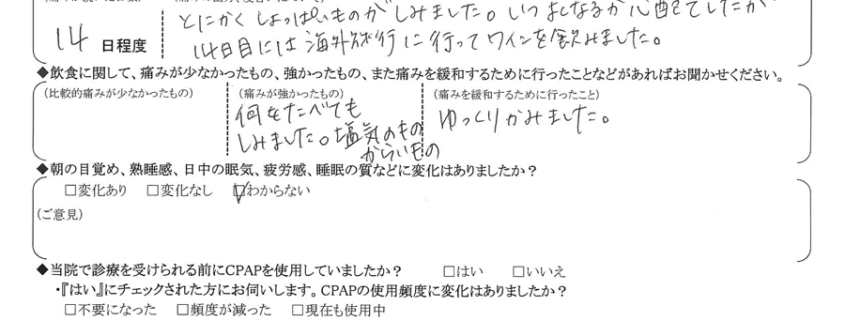 とにかくしょっぱいものがしみました。いつよくなるか心配でしたが
14 日程度
14日目には海外旅行に行ってワインを飲みました。
◆飲食に関して、痛みが少なかったもの、強かったもの、また痛みを緩和するために行ったことなどがあればお聞かせください。
(比較的痛みが少なかったもの) (痛みが強かったもの) (痛みを緩和するために行ったこと)
何をたべても
しみました。塩気のもの
からいもの
ゆっくりかみました。
◆朝の目覚め、熟睡感、日中の眠気、疲労感、睡眠の質などに変化はありましたか?
□変化あり □変化なし ☑わからない
(ご意見)
◆当院で診療を受けられる前にCPAPを使用していましたか? □はい □いいえ
・『はい』にチェックされた方にお伺いします。CPAPの使用頻度に変化はありましたか?
□不要になった □頻度が減った □現在も使用中